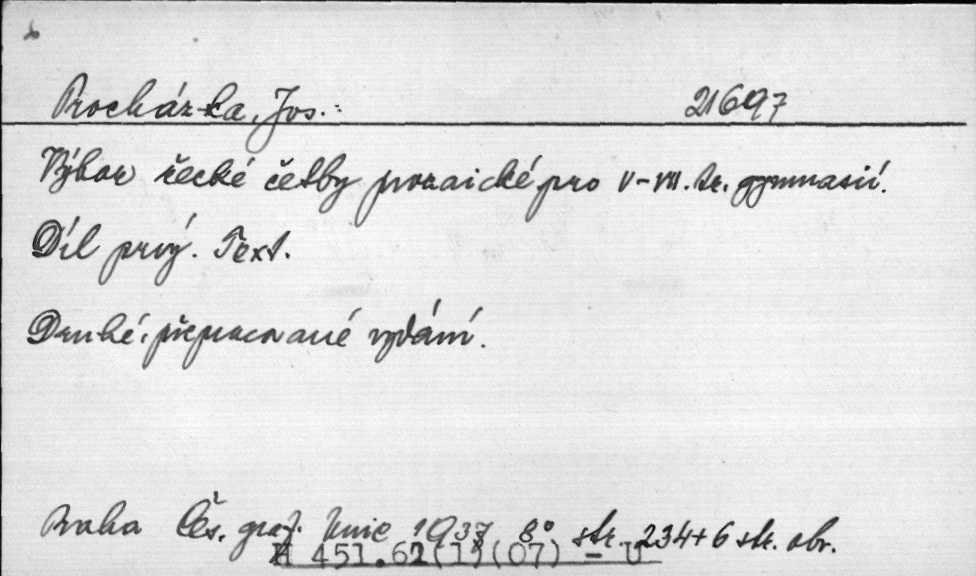 Procházka, Jos.: 21697
Výbor řecké četby prozaické pro V-VII. tř. gymnasií.
Díl prvý. Text.
Druhé, přepracované vydání.
Praha Čes. graf. Unie 1937 8° str. 234+6 str. obr.
451.62(1)(07) - U